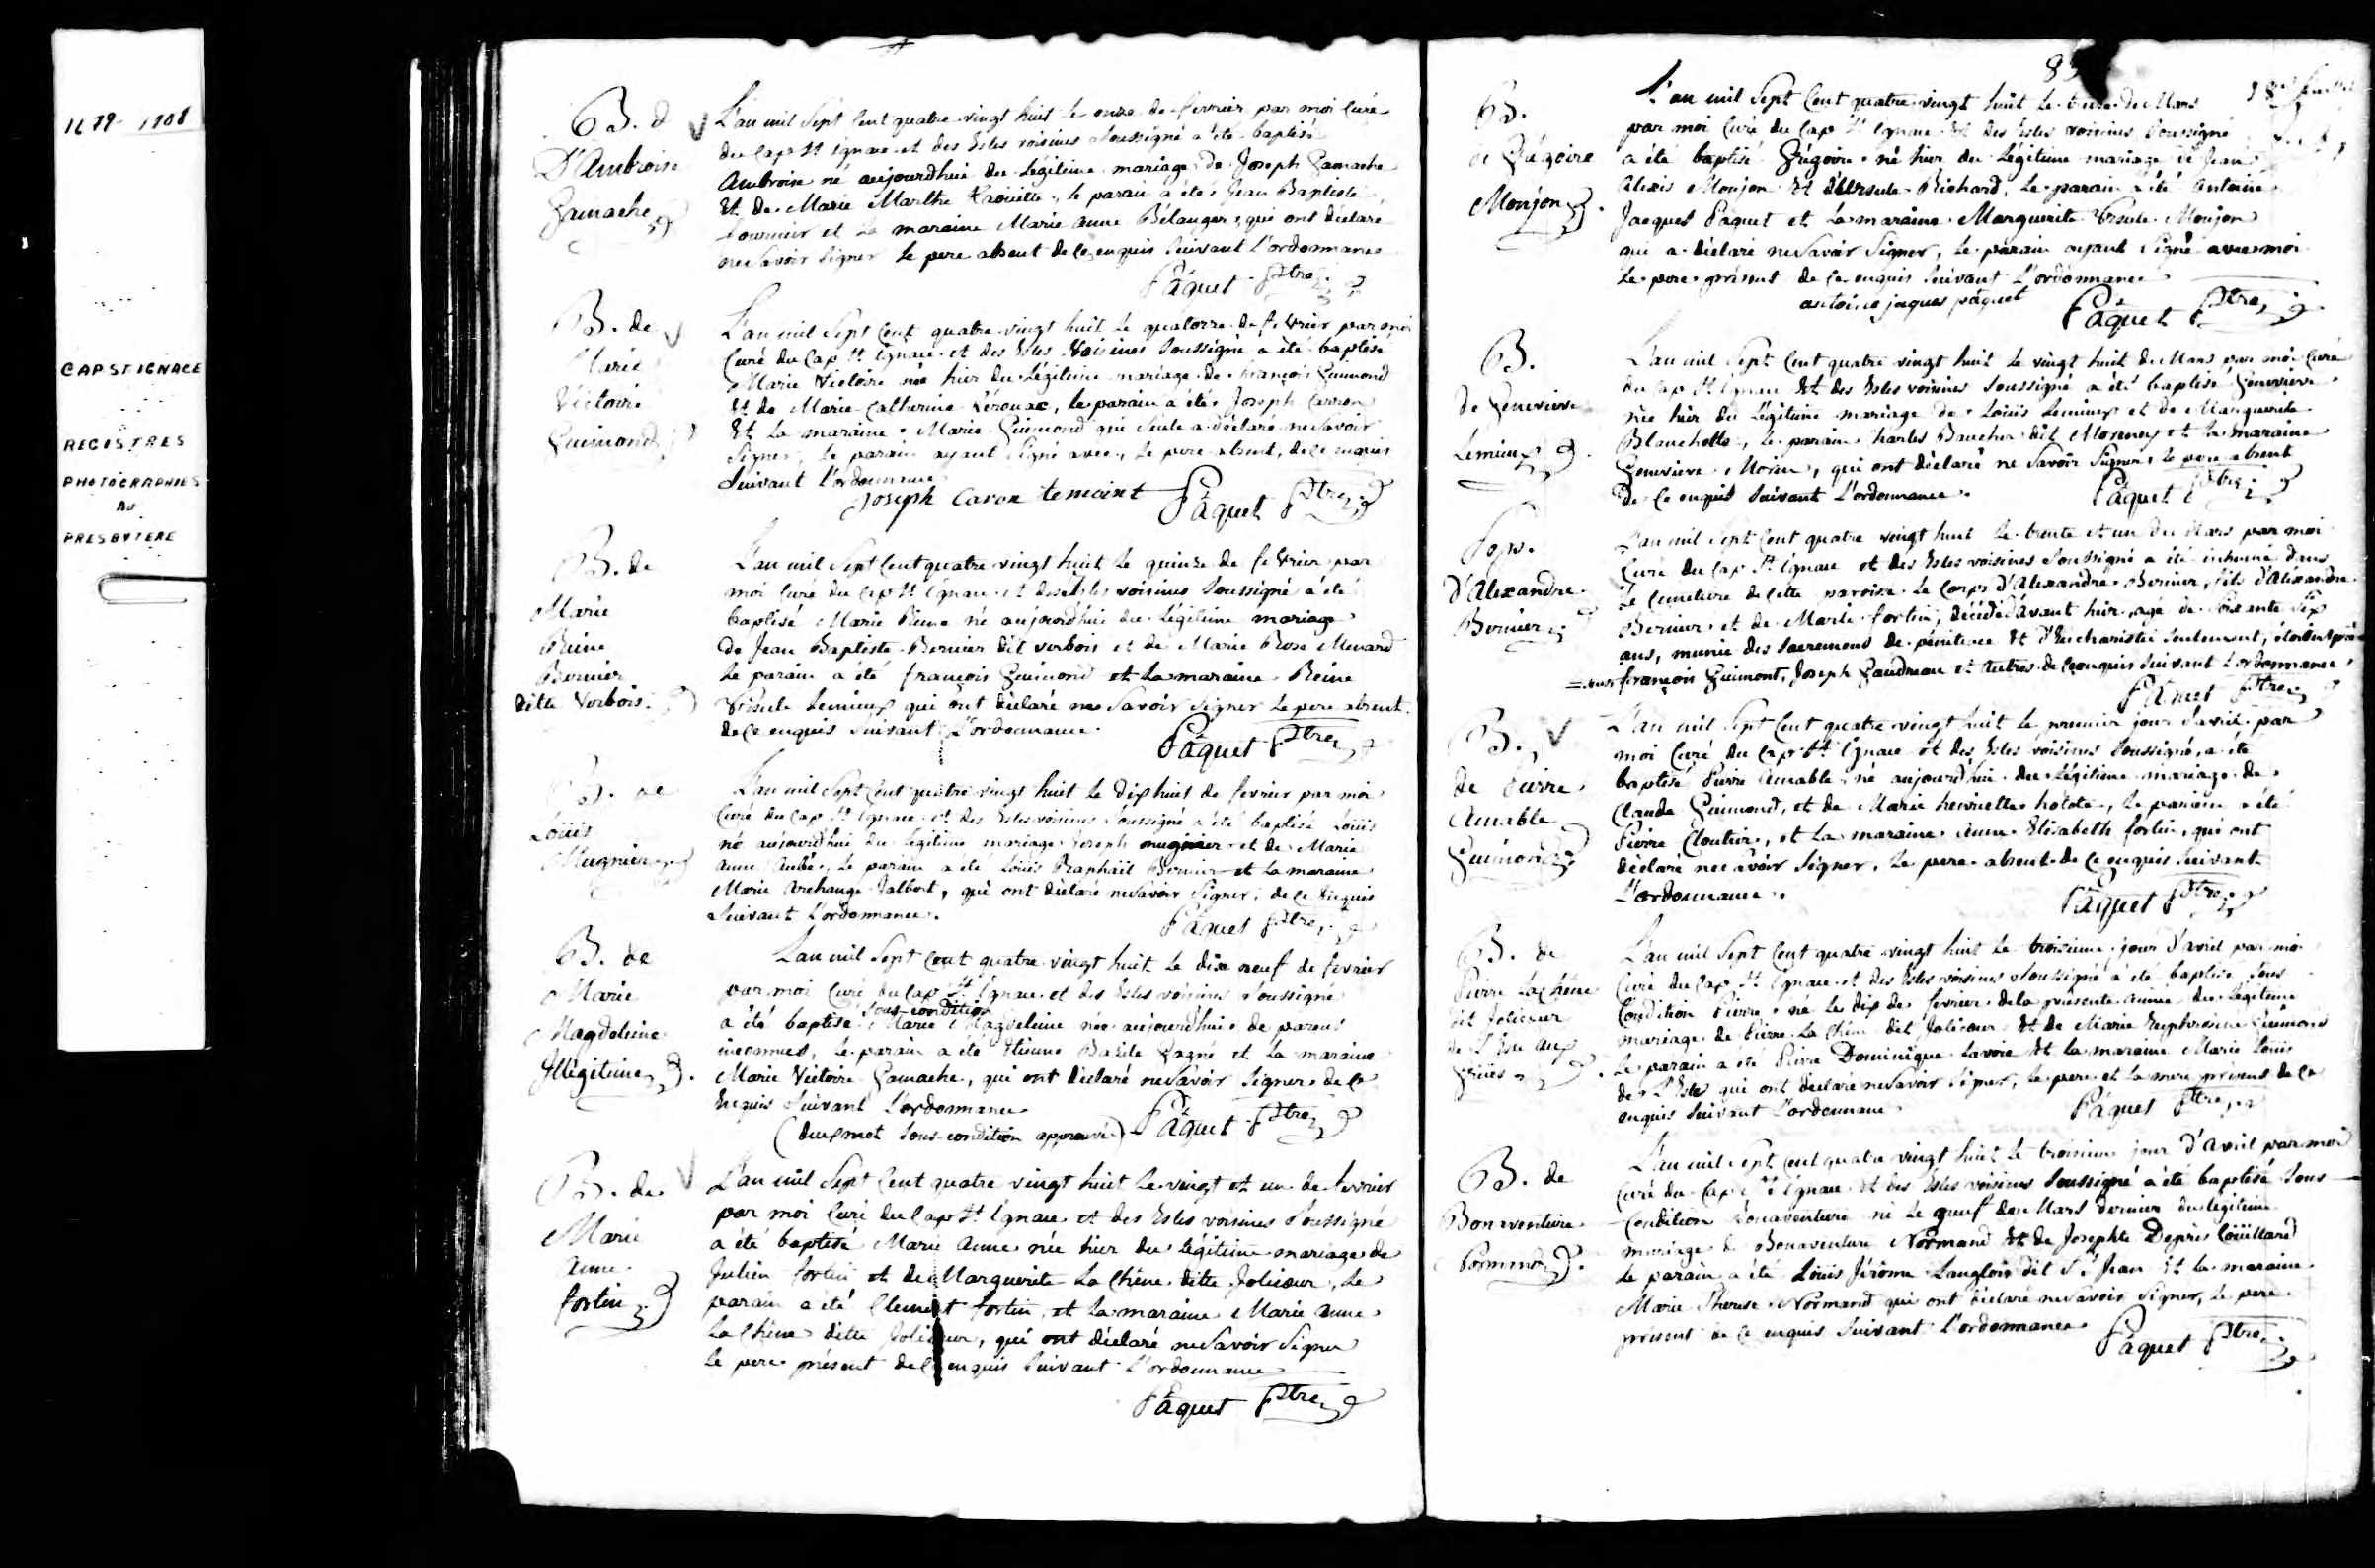 1679-1908
CAP ST IGNACE
REGISTRES
PHOTOGRAPHIES
AU
PRESBYTERE
B. d
D'Ambroise
Gamache
L'an mil Sept Cent quatre-vingt huit le onze de fevrier par moi Curé
du Cap St Ignace et des Isles voisines Soussigné a été baptisé
Ambroise né aujourdhui du Légitime mariage de Joseph Gamache
Et de Marie Marthe Raouille, le parain a été Jean Baptiste
fournier et la maraine Marie anne Bélanger qui ont déclaré
ne Savoir Signer le pere absent de ce enquis Suivant L'ordonnance
Pâquet Ptre
B. de
Marie
Victoire
Guimond
L'an mil Sept Cent quatre-vingt huit le quatorze de fevrier par moi
Curé du Cap St Ignace et des Isles Voisines Soussigné a été baptisé
Marie Victoire née hier du Légitime mariage de françois Guimond
Et de Marie Catherine Kérouac, le parain a été Joseph Carron
Et La maraine Marie Guimond qui Seule a déclaré ne Savoir
Signer, le parain ayant Signé avec, le pere absent, de ce enquis
Suivant l'ordonnance
Joseph Caron temoint Pâquet Ptre
B. de
Marie
Reine
Bernier
ditte Verbois
L'an mil Sept Cent quatre vingt huit le quinze de fevrier par
moi Curé du Cap St Ignace et des Isles voisines Soussigné a été
baptisé Marie Reine né aujourdhui du Légitime mariage
de Jean Baptiste Bernier dit verbois et de Marie Rose Menard
Le parain a été françois Guimond et La maraine Reine
Ursule Lemieux qui ont déclaré ne Savoir Signer Le pere absent
de ce enquis Suivant L'ordonnance.
Pâquet Ptre
B. de
Loüis
Mugnier
L'an mil Sept Cent quatre vingt huit le dix huit de fevrier par moi
Curé du Cap St Ignace et des Isles voisines Soussigné a été baptisé Loüis
né aujourdhui du Légitime mariage Joseph mugnier et de Marie
anne Aubé, le parain a été Loüis Raphaël Bernier et La maraine
Marie Archange Jalbert, qui ont déclaré ne Savoir Signer, de ce Enquis
Suivant l'ordonnance.
Pâquet Ptre
B. de
Marie
Magdeleine
Illégitime
L'an mil Sept Cent quatre vingt huit le dix neuf de fevrier
par moi Curé du Cap St Ignace et des Isles voisines Soussigné
Sous condition
a été baptisé Marie Magdeleine née aujourdhui de parens
inconnues, le parain a été Etienne Basile Gagné et la maraine
Marie Victoire Gamache, qui ont déclaré ne Savoir Signer de ce
Enquis Suivant L'ordonnance
(deux mot Sous-condition approuvé) Pâquet Ptre
B. de
Marie
Anne
fortin
L'an mil Sept Cent quatre vingt huit Le vingt et un de fevrier
par moi Curé du Cap St Ignace et des Isles voisines Soussigné
a été baptisé Marie Anne née hier du Légitime mariage de
Julien fortin et de Marguerite La Chêne ditte Jolicœur, le
parain a été Clement fortin et la maraine Marie anne
La Chêne ditte Jolicœur, qui ont déclaré ne Savoir Signer
le pere présent de ce enquis Suivant L'ordonnance
Pâquet Ptre
B.
de Grégoire
Monjon
L'an mil Sept Cent quatre-vingt huit le treize de Mars
par moi Curé du Cap St Ignace et des Isles voisines Soussigné
a été baptisé Grégoire né hier du Légitime mariage de Jean
Alexis Monjon et d'Ursule Richard, le parain a été Antoine
Jacques Pâquet et La maraine Marguerite Ursule Monjon
qui a déclaré ne Savoir Signer, le parain ayant Signé avec moi
Le pere présent de ce enquis Suivant L'ordonnance
antoine jaques pâquet Pâquet Ptre
B.
de Genevieve
Lemieux
L'an mil Sept Cent quatre vingt huit le vingt huit de Mars par moi Curé
du Cap St Ignace Et des Isles voisines Soussigné a été baptisé Genevieve
née hier du Légitime mariage de Loüis Lemieux et de Marguerite
Blanchette, le parain Charles Baucher dit Morency et la maraine
Genevieve Morin, qui ont déclaré ne Savoir Signer, le pere absent
de ce enquis Suivant L'ordonnance.
Pâquet Ptre
Sep.
d'Alexandre
Bernier
L'an mil Sept Cent quatre vingt huit le trente et un de Mars par moi
Curé du Cap St Ignace et des Isles voisines Soussigné a été inhumé dans
Le Cimetiere de cette paroisse le Corps d'Alexandre Bernier, fils d'Alexandre
Bernier et de Marie fortin, décédé d'avant hier agé de Soixante Six
ans, munie des Sacremens de pénitence et d'Eucharistie Seulement, étoient pré-
=sens françois Guimont, Joseph Gaudreau et Autres de ce enquis Suivant L'ordonnance
Pâquet Ptre
B.
de Pierre
Amable
Guimond
L'an mil Sept Cent quatre vingt huit le premier jour d'avril par
moi Curé du Cap St Ignace et des Isles voisines Soussigné, a été
baptisé Pierre Amable né aujourdhui du Légitime mariage de
Claude Guimond, et de Marie henriette holote, le parain a été
Pierre Cloutier, et La maraine Anne Elisabeth fortin, qui ont
déclaré ne Savoir Signer, Le pere absent de ce enquis Suivant
L'ordonnance.
Pâquet Ptre
B. de
Pierre La Chêne
dit Jolicœur
de L'Isle aux
Grües
L'an mil Sept Cent quatre vingt huit le troisieme jour d'avril par moi
Curé du Cap St Ignace et des Isles voisines Soussigné a été baptisé Sous
Condition Pierre né Le dix de fevrier de la présente année du Légitime
mariage de Pierre La Chêne dit Jolicœur Et de Marie Euphrosine Guimond
Le parain a été Pierre Dominique Lavoie Et la maraine Marie Loüis
de L'Isle qui ont déclaré ne Savoir Signer, le pere et la mere présens de ce
enquis Suivant L'ordonnance
Pâquet Ptre
B. de
Bonaventure
Normand
L'an mil Sept Cent quatre vingt huit le troisieme jour d'Avril par moi
Curé du Cap St Ignace Et des Isles voisines Soussigné a été baptisé Sous
Condition Bonaventure né Le neuf de Mars dernier du Légitime
mariage de Bonaventure Normand Et de Josephte Deprés Coüillard
le parain a été Loüis Jérôme Langlois dit St Jean Et la maraine
Marie Therese Normand qui ont déclaré ne Savoir Signer, le pere
présent de ce enquis Suivant L'ordonnance
Pâquet Ptre